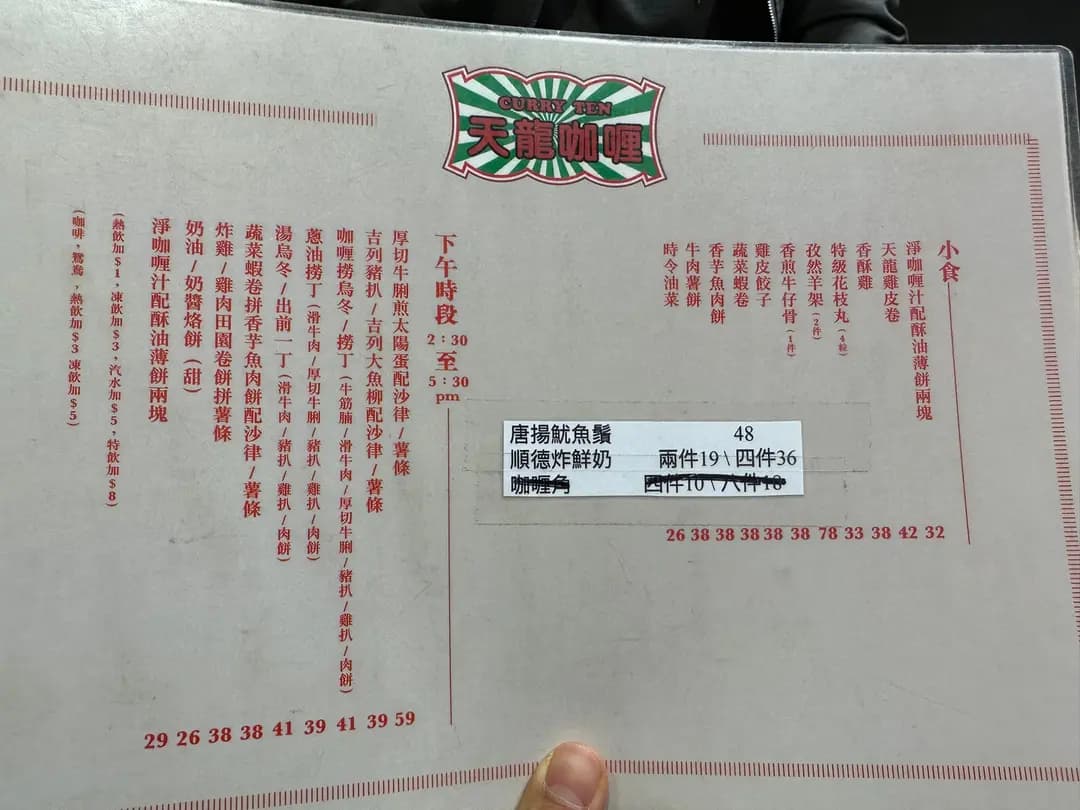 CURRY TEN
天龍咖喱
小食
淨咖喱汁配酥油薄餅兩塊 32
天龍雞皮卷 42
香酥雞 38
特級花枝丸(4粒) 33
孜然羊架(2件) 78
香煎牛仔骨(1件) 38
雞皮餃子 38
蔬菜蝦卷 38
香芋魚肉餅 38
牛肉薯餅 38
時令油菜 26
唐揚魷魚鬚 48
順德炸鮮奶 兩件19\四件36
咖喱角 四件10\八件18
下午時段 2:30 至 5:30 pm
厚切牛脷煎太陽蛋配沙律/薯條 59
吉列豬扒/吉列大魚柳配沙律/薯條 39
咖喱撈烏冬/撈丁(牛筋腩/滑牛肉/厚切牛脷/豬扒/雞扒/肉餅) 41
蔥油撈丁(滑牛肉/厚切牛脷/豬扒/雞扒/肉餅) 39
湯烏冬/出前一丁(滑牛肉/豬扒/雞扒/肉餅) 41
蔬菜蝦卷拼香芋魚肉餅配沙律/薯條 38
炸雞/雞肉田園卷餅拼薯條 38
奶油/奶醬烙餅(甜) 26
淨咖喱汁配酥油薄餅兩塊 29
(熱飲加$1,凍飲加$3,汽水加$5,特飲加$8)
(咖啡,鴛鴦,熱飲加$3 凍飲加$5)